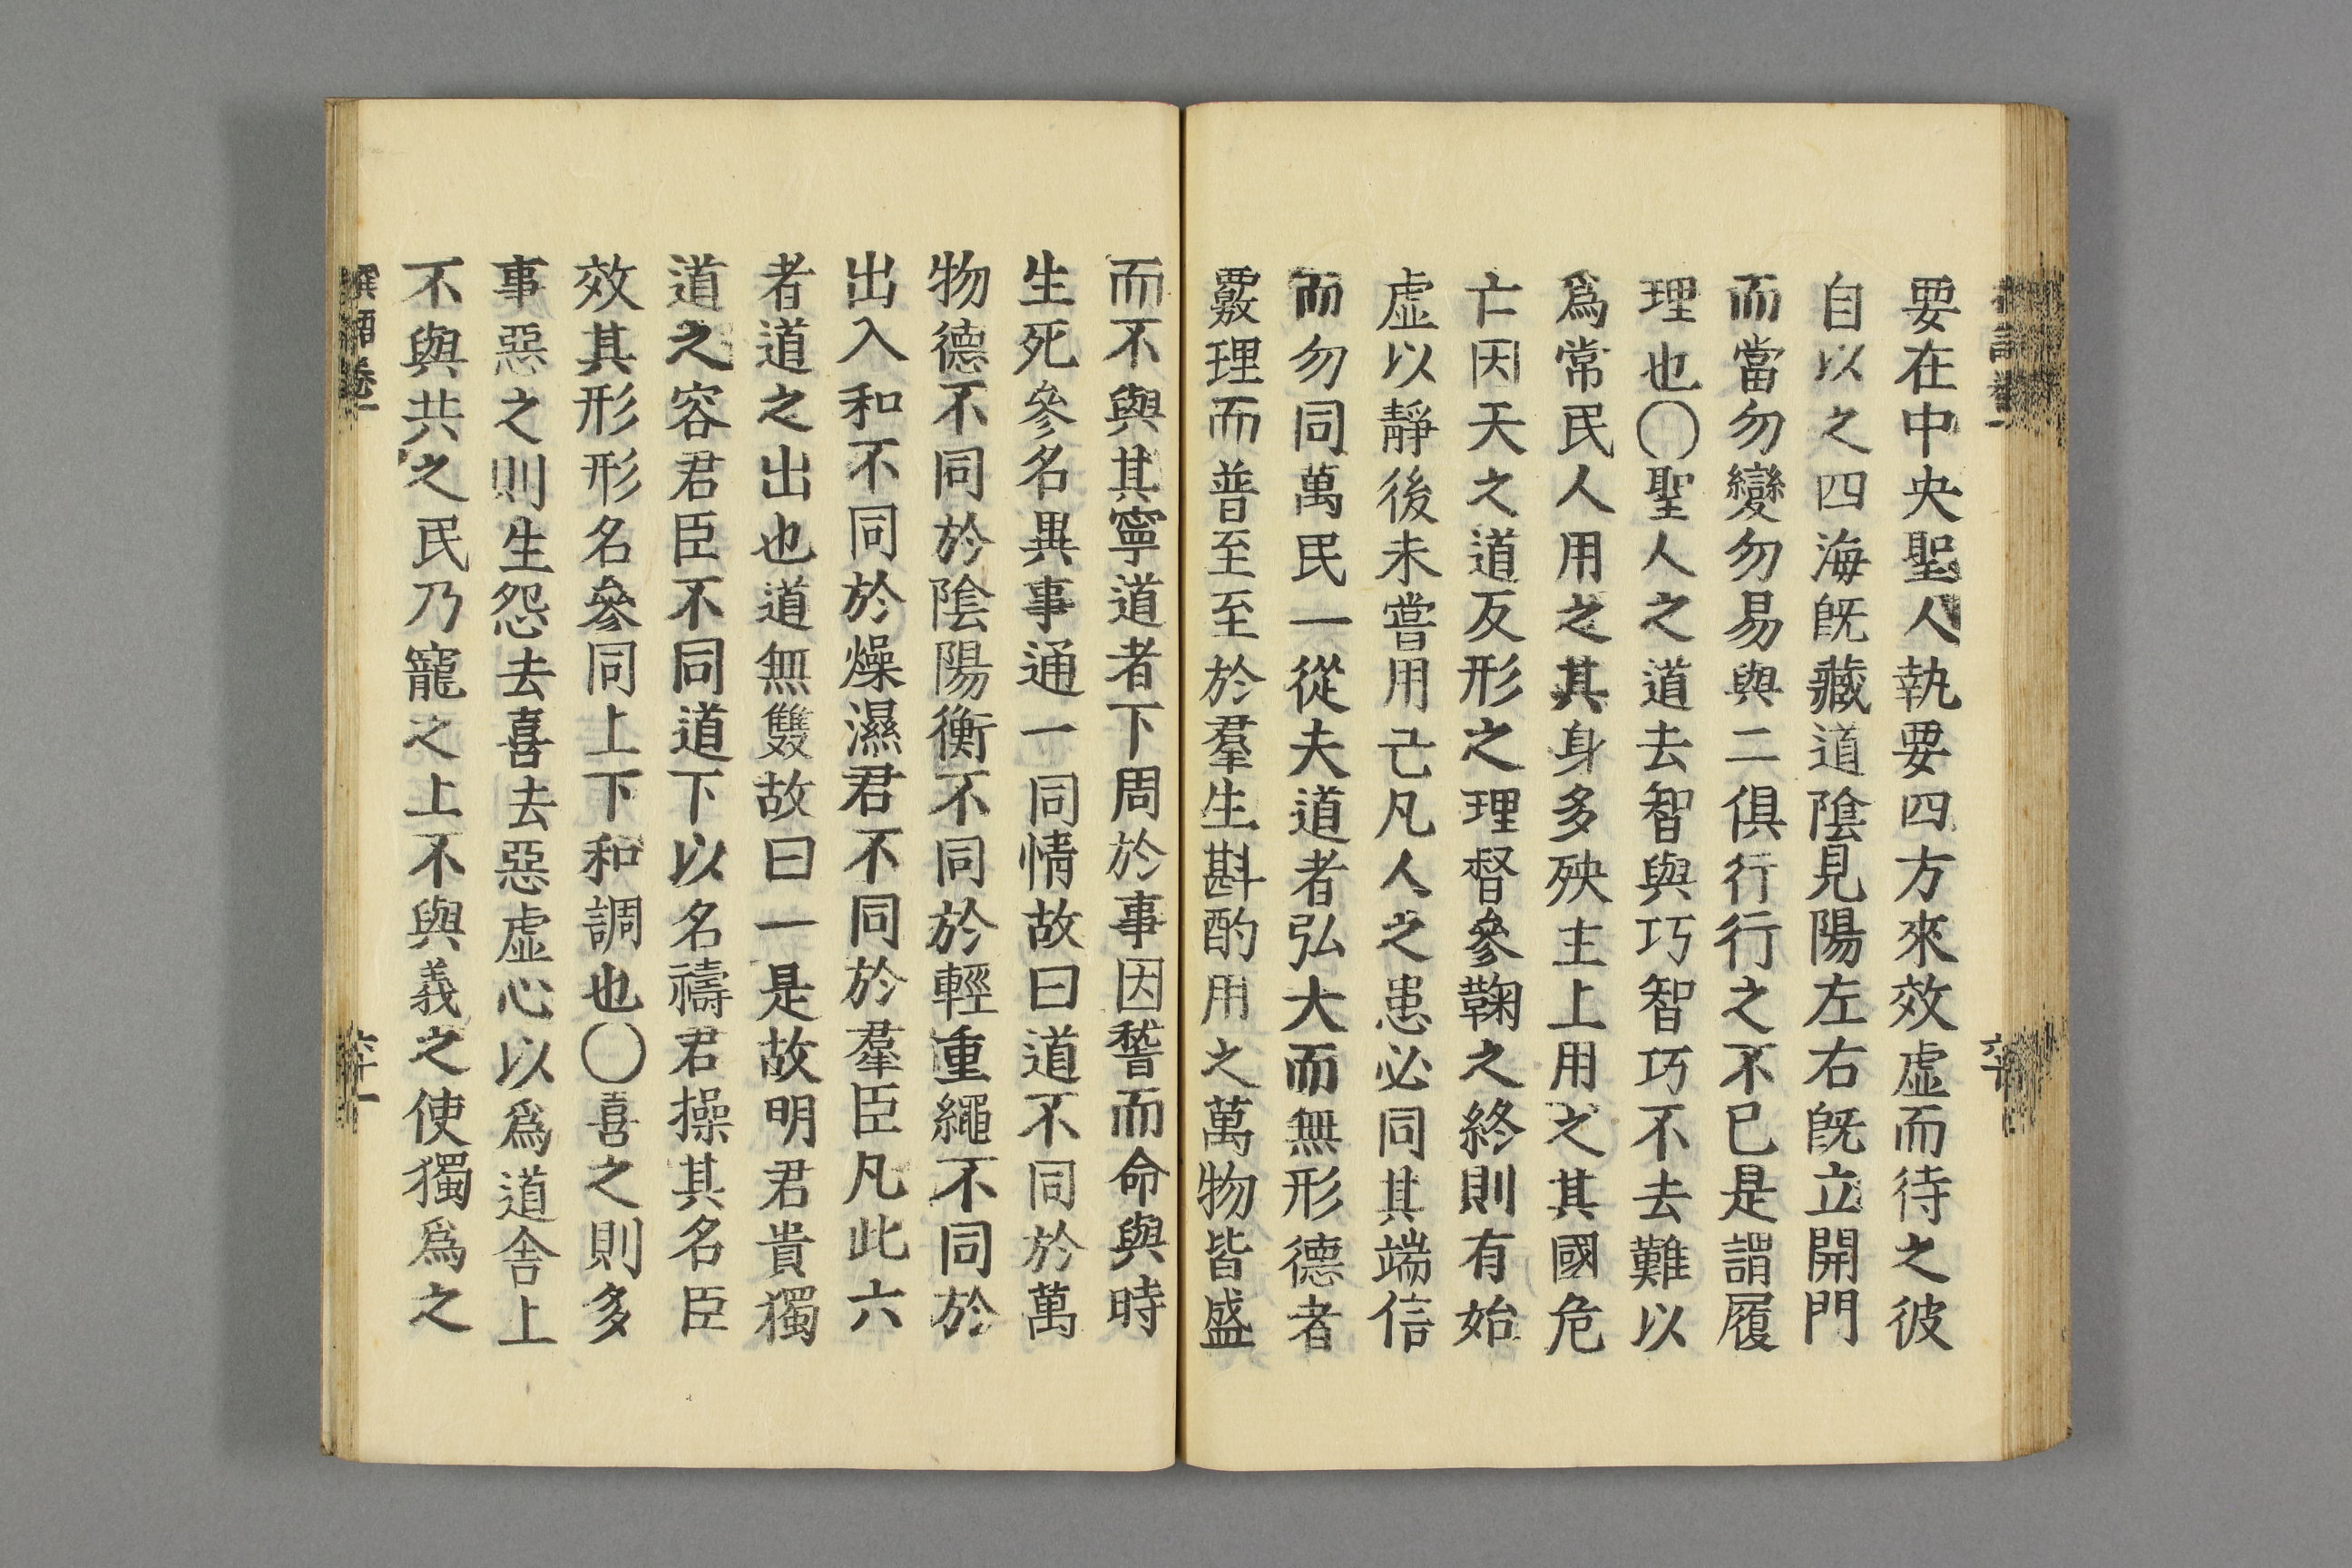 要在中央聖人執要四方來效虛而待之彼
自以之四海旣藏道陰見陽左右旣立開門
而當勿變勿易與二俱行行之不已是謂履
理也〇聖人之道去智與巧智巧不去難以
爲常民人用之其身多殃主上用之其國危
亡因天之道反形之理督參鞠之終則有始
虛以靜後未嘗用己凡人之患必同其端信
而勿同萬民一從夫道者弘大而無形德者
覈理而普至至於羣生斟酌用之萬物皆盛
而不與其寧道者下周於事因稽而命與時
生死參名異事通一同情故曰道不同於萬
物德不同於陰陽衡不同於輕重繩不同於
出入和不同於燥濕君不同於羣臣凡此六
者道之出也道無雙故曰一是故明君貴獨
道之容君臣不同道下以名禱君操其名臣
效其形形名參同上下和調也〇喜之則多
事惡之則生怨去喜去惡虛心以爲道舍上
不與共之民乃寵之上不與義之使獨爲之
卷一